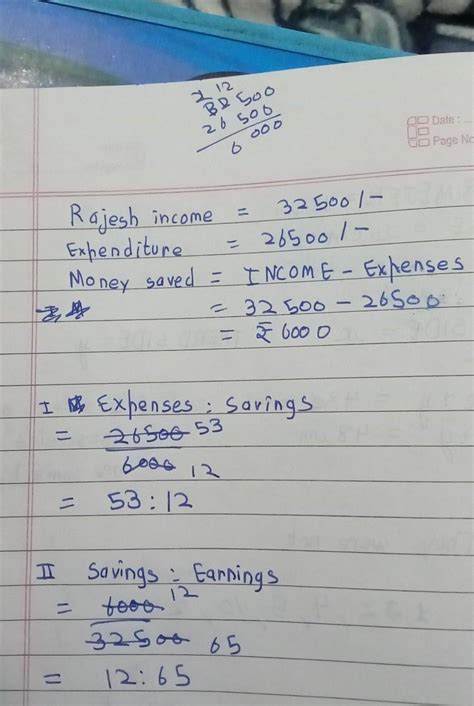 2 12
32500
26500
6000
Date :
Page No
Rajesh income = 32500/-
Expenditure = 26500/-
Money saved = INCOME - Expenses
= 32500 - 26500
= ₹ 6000
I Expenses : Savings
= 26500 53
6000 12
= 53 : 12
II Savings : Earnings
= 6000 12
32500 65
= 12 : 65